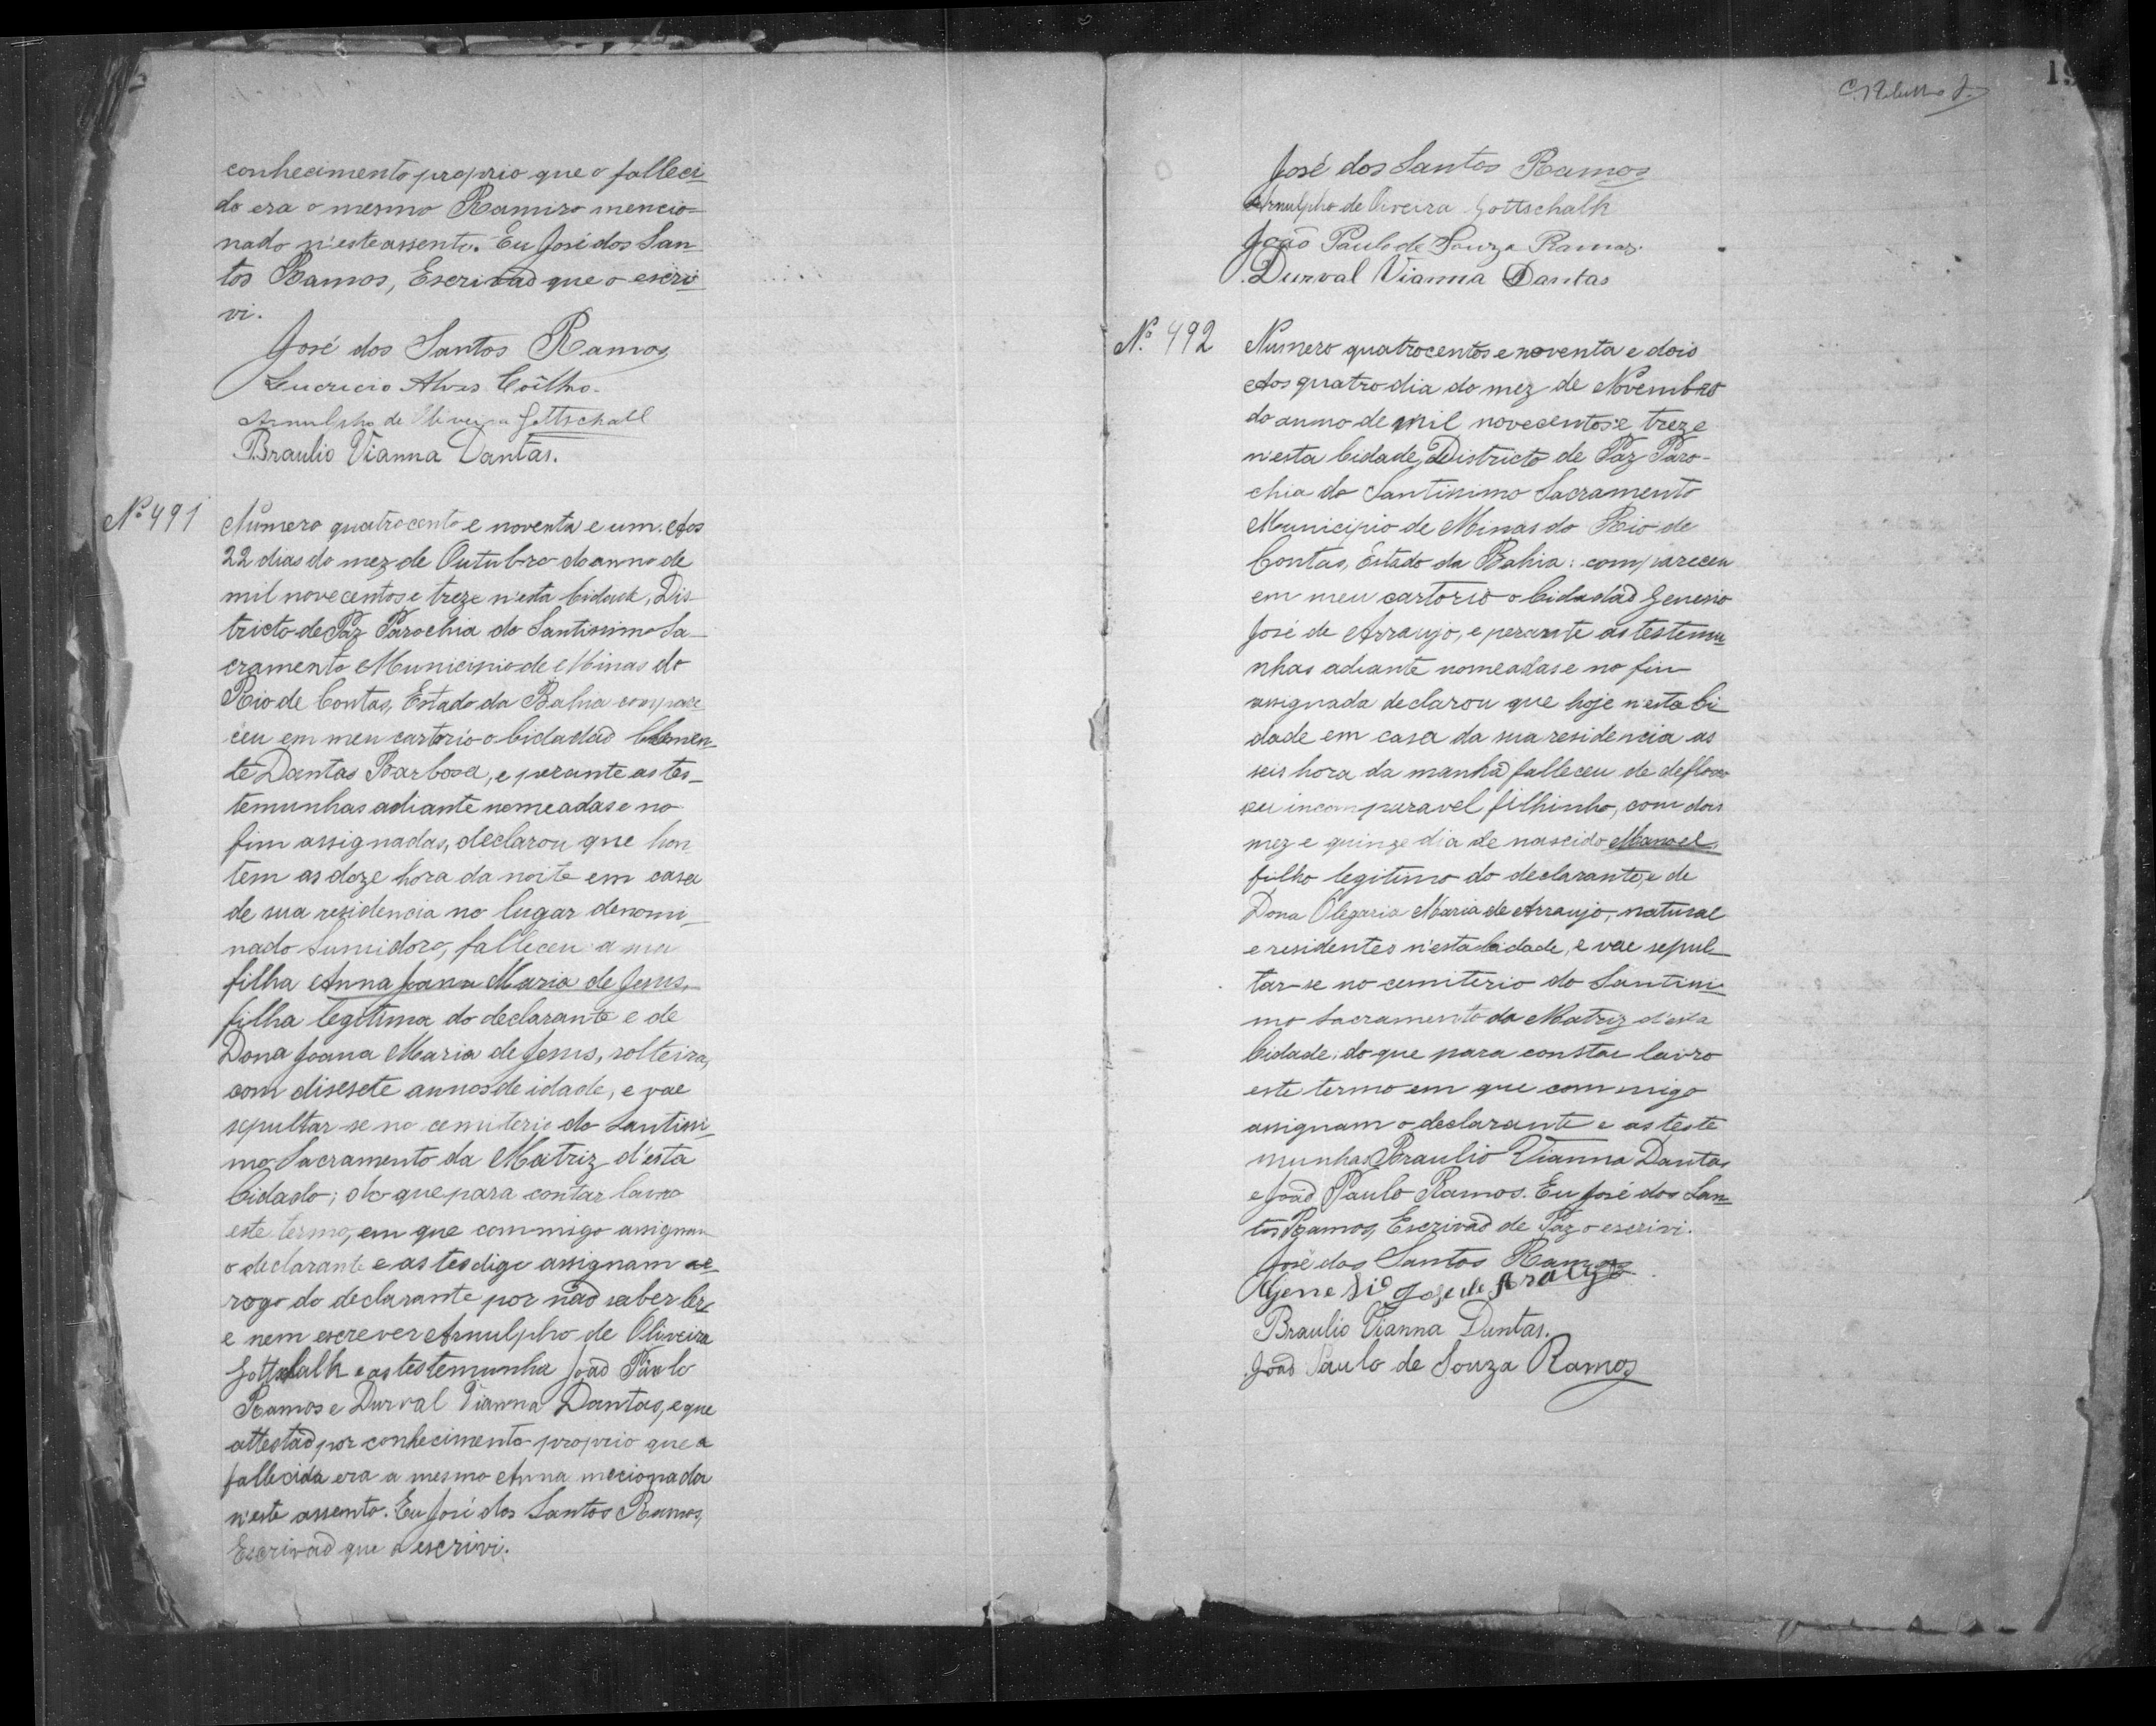 conhecimento proprio que o falleci-
do era o mesmo Ramiro mencio-
nado n'este assento. Eu José dos San-
tos Ramos, Escrivaõ que o escri-
vi.
José dos Santos Ramos
Lucricio Alves Coêlho.
Arnulpho de Oliveira Gottschall
Braulio Vianna Dantas.
Nº 491
Numero quatrocento e noventa e um. Aos
22 dias do mez de Outubro do anno de
mil novecentos e treze n'esta Cidade, Dis-
tricto de Paz Parochia do Santissimo Sa-
cramento Municipio de Minas do
Rio de Contas, Estado da Bahia compare
ceu em meu cartorio o Cidadaõ Clemen-
te Dantas Barbosa, e perante as tes-
temunhas adiante nomeadas e no
fim assignadas, declarou que hon-
tem as doze hora da noite em casa
de sua residencia no lugar denomi-
nado Sumidoro, falleceu a sua
filha Anna Joana Maria de Jesus,
filha legitima do declarante e de
Dona Joana Maria de Jesus, solteira,
com disesete annos de idade, e vae
sepultar-se no cemiterio do Santissi-
mo Sacramento da Matriz d'esta
Cidade; do que para contar lavro
este termo, em que commigo assignam
o declarante e as tes digo assignam a
rogo do declarante por naõ saber ler
e nem escrever Arnulpho de Oliveira
Gottschalk e as testemunha Joaõ Paulo
Ramos e Durval Vianna Dantas, e que
attestaõ por conhecimento proprio que a
fallecida era a mesmo Anna mecionada
n'este assento. Eu José dos Santos Ramos,
Escrivaõ que o escrivi.
19
José dos Santos Ramos
Arnulpho de Oliveira Gottschalk
Joaõ Paulo de Souza Ramos.
Durval Vianna Dantas
Nº 492
Numero quatrocentos e noventa e dois
Aos quatro dia do mez de Novembro
do anno de mil novecentos e treze
n'esta Cidade, Districto de Paz Paro-
chia do Santissimo Sacramento
Municipio de Minas do Rio de
Contas, Estado da Bahia: compareceu
em meu cartorio o Cidadaõ Genesio
José de Arraujo, e perante as testemu-
nhas adiante nomeadas e no fim
assignada declarou que hoje n'esta Ci-
dade em casa da sua residencia as
seis hora da manhã falleceu de defloxo
seu incomparavel filhinho, com dois
mez e quinze dia de nascido Manoel,
filho legitimo do declarante, e de
Dona Olegaria Maria de Arraujo, natural
e residentes n'esta Cidade, e vae sepul-
tar-se no cemiterio do Santissi-
mo Sacramento da Matriz d'esta
Cidade. do que para constar lavro
este termo em que commigo
assignam o declarante e as teste
munhas Braulio Vianna Dantas
e Joaõ Paulo Ramos. Eu José dos San-
tos Ramos, Escrivaõ de Paz o escrivi.
José dos Santos Ramos
Genesio Jose de Araujo
Braulio Vianna Dantas.
Joaõ Paulo de Souza Ramos